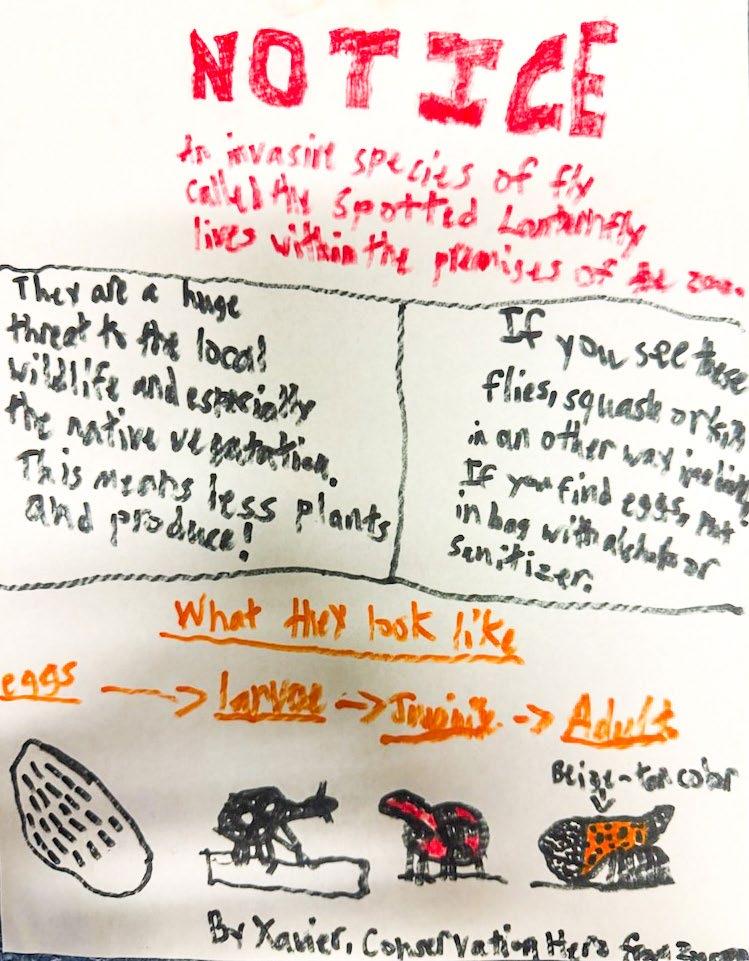 NOTICE
An invasive species of fly
called the Spotted Lanternfly
lives within the premises of the zoo.
They are a huge
threat to the local
wildlife and especially
the native vegatation.
This means less plants
and produce!
If you see these
flies, squash or kill
in an other way
If you find eggs, put
in bag with alchohol or
sanitizer.
What they look like
eggs → Larvae → Juvinile → Adult
Beige-tan color
By Xavier, Conservation Hero from